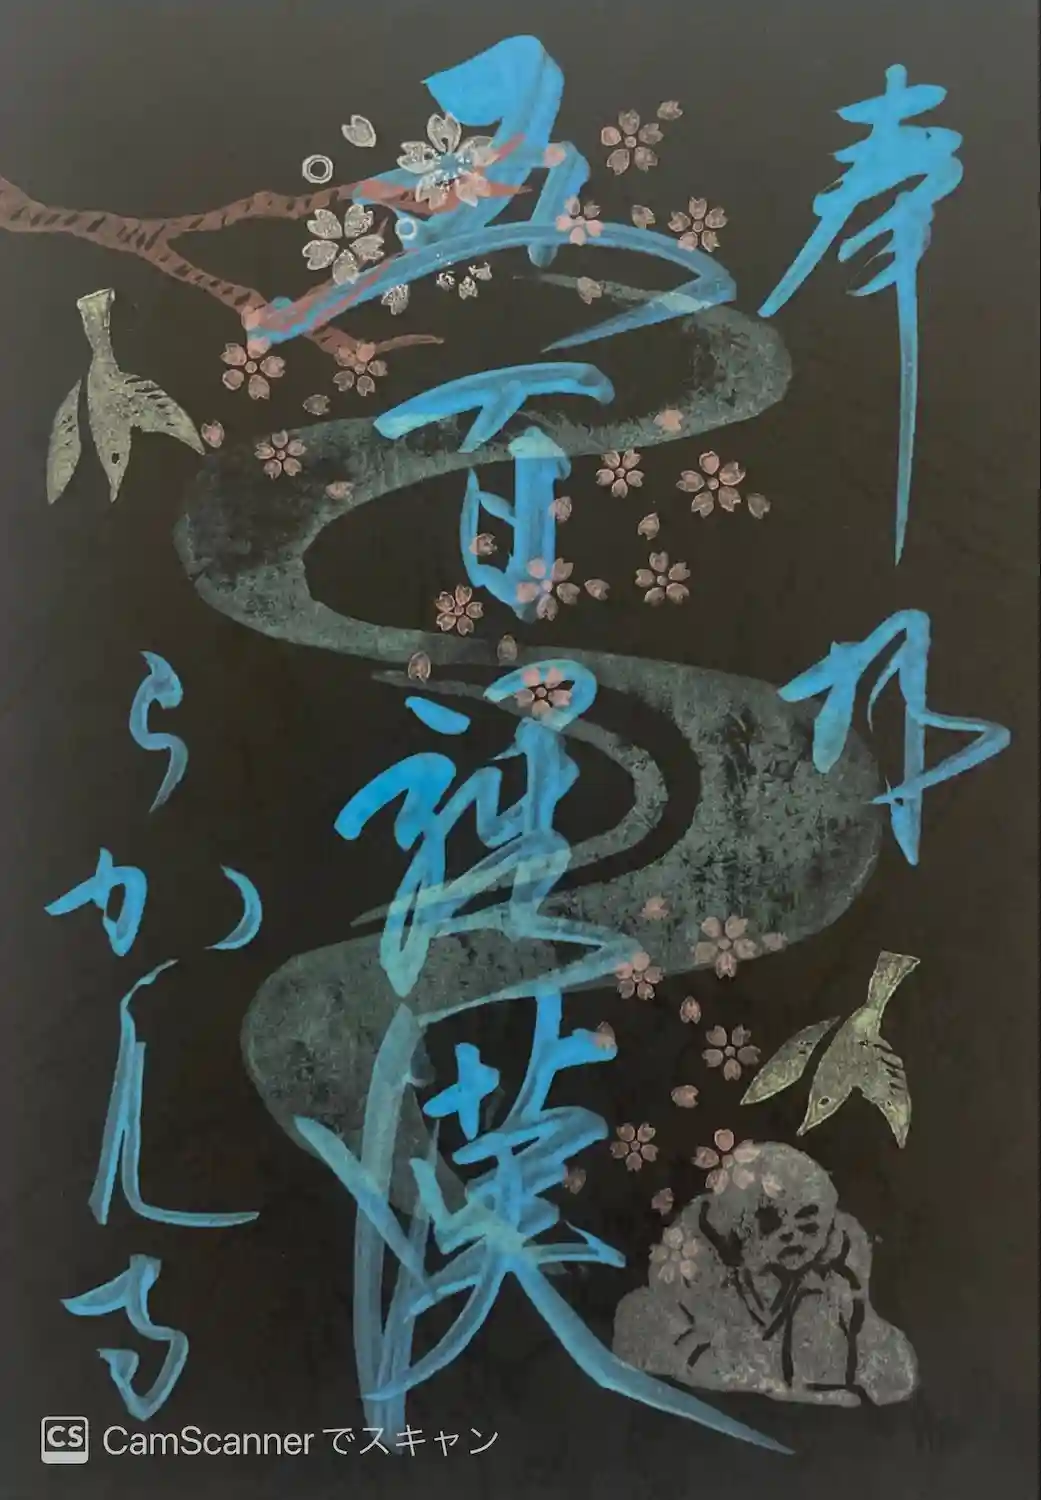 奉拝
五百羅漢
らかん寺
CS CamScannerでスキャン